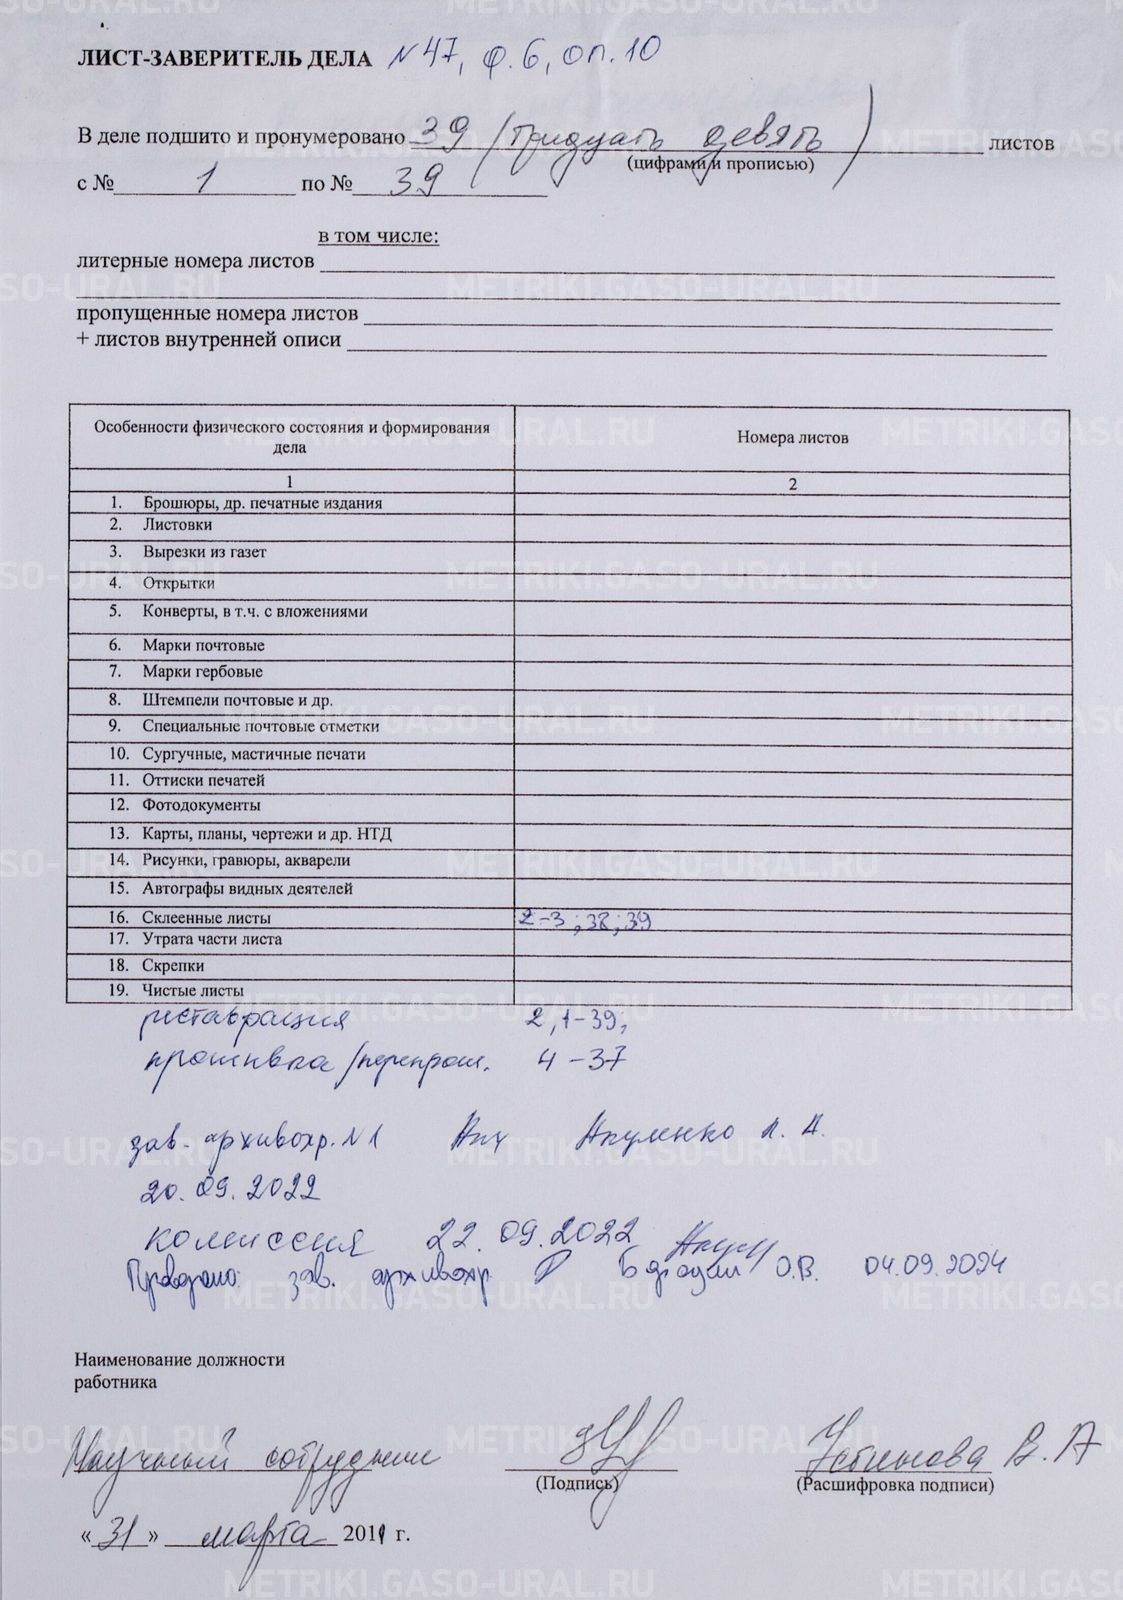 ЛИСТ-ЗАВЕРИТЕЛЬ ДЕЛА N 47, ф. 6, оп. 10
В деле подшито и пронумеровано 39 (тридцать девять) листов
(цифрами и прописью)
с № 1 по № 39
в том числе:
литерные номера листов
пропущенные номера листов
+ листов внутренней описи
Особенности физического состояния и формирования дела Номера листов
1 2
1. Брошюры, др. печатные издания
2. Листовки
3. Вырезки из газет
4. Открытки
5. Конверты, в т.ч. с вложениями
6. Марки почтовые
7. Марки гербовые
8. Штемпели почтовые и др.
9. Специальные почтовые отметки
10. Сургучные, мастичные печати
11. Оттиски печатей
12. Фотодокументы
13. Карты, планы, чертежи и др. НТД
14. Рисунки, гравюры, акварели
15. Автографы видных деятелей
16. Склеенные листы 2-3; 38; 39
17. Утрата части листа
18. Скрепки
19. Чистые листы
реставрация 2, 1-39;
прошивка/перепрош. 4-37
зав. архивохр. N1 Акуленко А.
20.09.2022
комиссия 22.09.2022
Проверено: зав. архивохр. О.В. 04.09.2024
Наименование должности
работника
Научный сотрудник Устинова В. А
(Подпись) (Расшифровка подписи)
«31» марта 2011 г.
METRIKI.GASO-URAL.RU